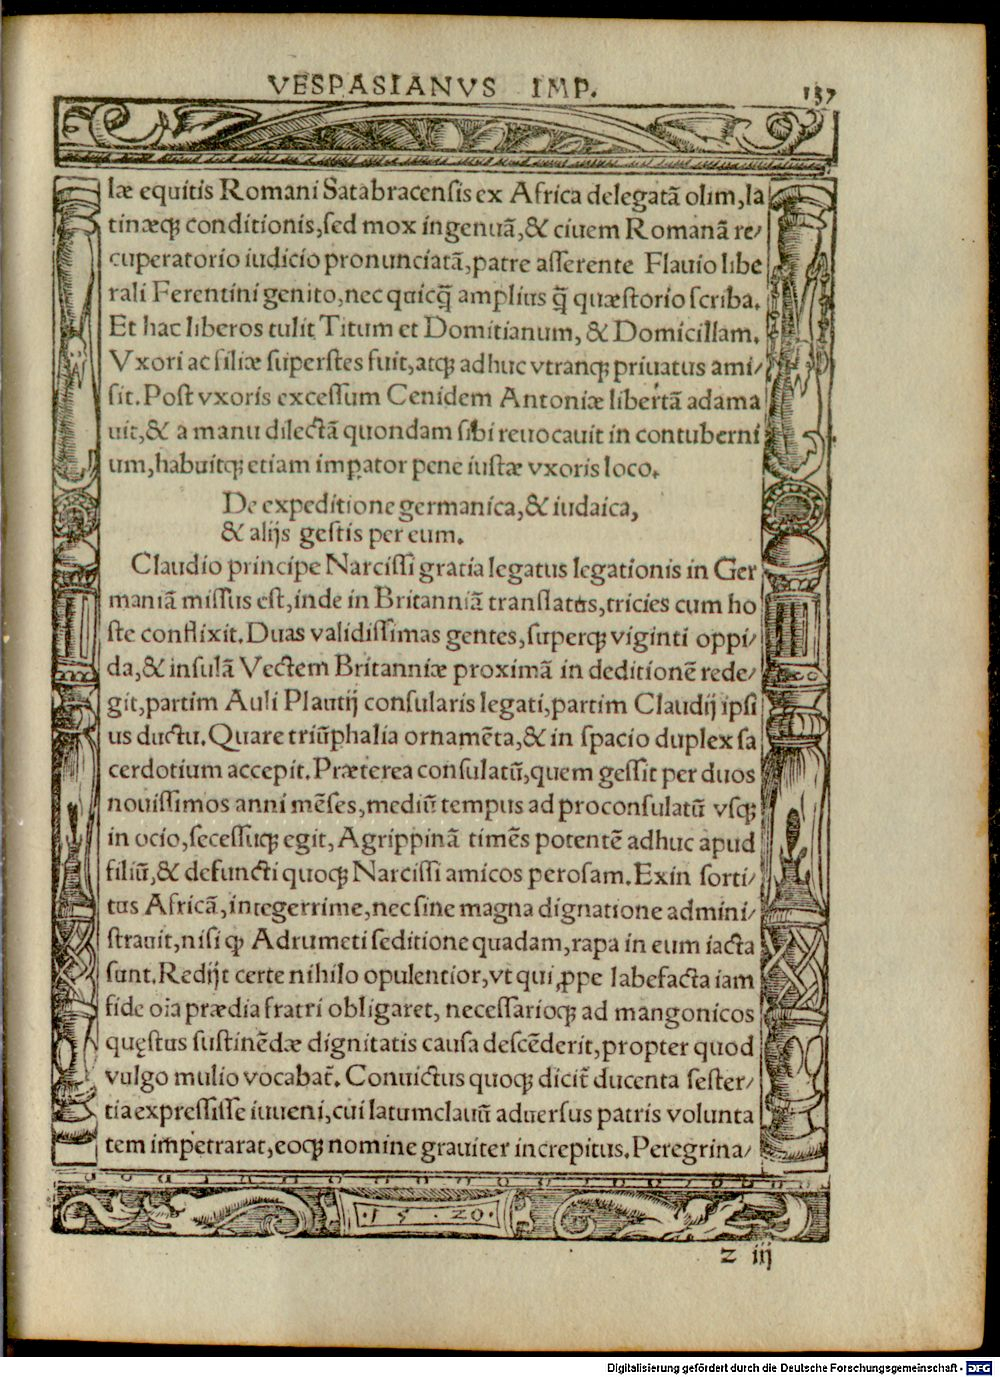 VESPASIANVS IMP. 137
læ equitis Romani Satabracenſis ex Africa delegatã olim, la
tinæq; conditionis, ſed mox ingenuã, & ciuem Romanã re/
cuperatorio iudicio pronunciatã, patre aſſerente Flauio libe
rali Ferentini genito, nec quicq̃ amplius q̃ quæſtorio ſcriba.
Et hac liberos tulit Titum et Domitianum, & Domicillam.
Vxori ac filiæ ſuperſtes fuit, atq; adhuc vtranq; priuatus ami/
ſit. Poſt vxoris exceſſum Cenidem Antoniæ libertã adama
uit, & a manu dilectã quondam ſibi reuocauit in contuberni
um, habuitq; etiam imꝑator pene iuſtæ vxoris loco.
De expeditione germanica, & iudaica,
& alijs geſtis per eum.
Claudio principe Narciſſi gratia legatus legationis in Ger
maniã miſſus eſt, inde in Britanniã tranſlatus, tricies cum ho
ſte conflixit. Duas validiſſimas gentes, ſuperq; viginti oppi/
da, & inſulã Vectem Britanniæ proximã in deditionẽ rede/
git, partim Auli Plautij conſularis legati, partim Claudij ipſi
us ductu. Quare triũphalia ornamẽta, & in ſpacio duplex ſa
cerdotium accepit. Præterea conſulatũ, quem geſſit per duos
nouiſſimos anni mẽſes, mediũ tempus ad proconſulatũ vſq;
in ocio, ſeceſſuq; egit, Agrippinã timẽs potentẽ adhuc apud
filiũ, & defuncti quoq; Narciſſi amicos peroſam. Exin ſorti/
tus Africã, integerrime, nec ſine magna dignatione admini/
ſtrauit, niſi ꝙ Adrumeti ſeditione quadam, rapa in eum iacta
ſunt. Redijt certe nihilo opulentior, vt qui ꝓpe labefacta iam
fide oĩa prædia fratri obligaret, neceſſarioq; ad mangonicos
quęſtus ſuſtinẽdæ dignitatis cauſa deſcẽderit, propter quod
vulgo mulio vocabat̃. Conuictus quoq; dicit̃ ducenta ſeſter/
tia expreſſiſſe iuueni, cui latumclauũ aduersus patris volunta
tem impetrarat, eoq; nomine grauiter increpitus. Peregrina/
·15·20·
z iij
Digitalisierung gefördert durch die Deutsche Forschungsgemeinschaft - DFG